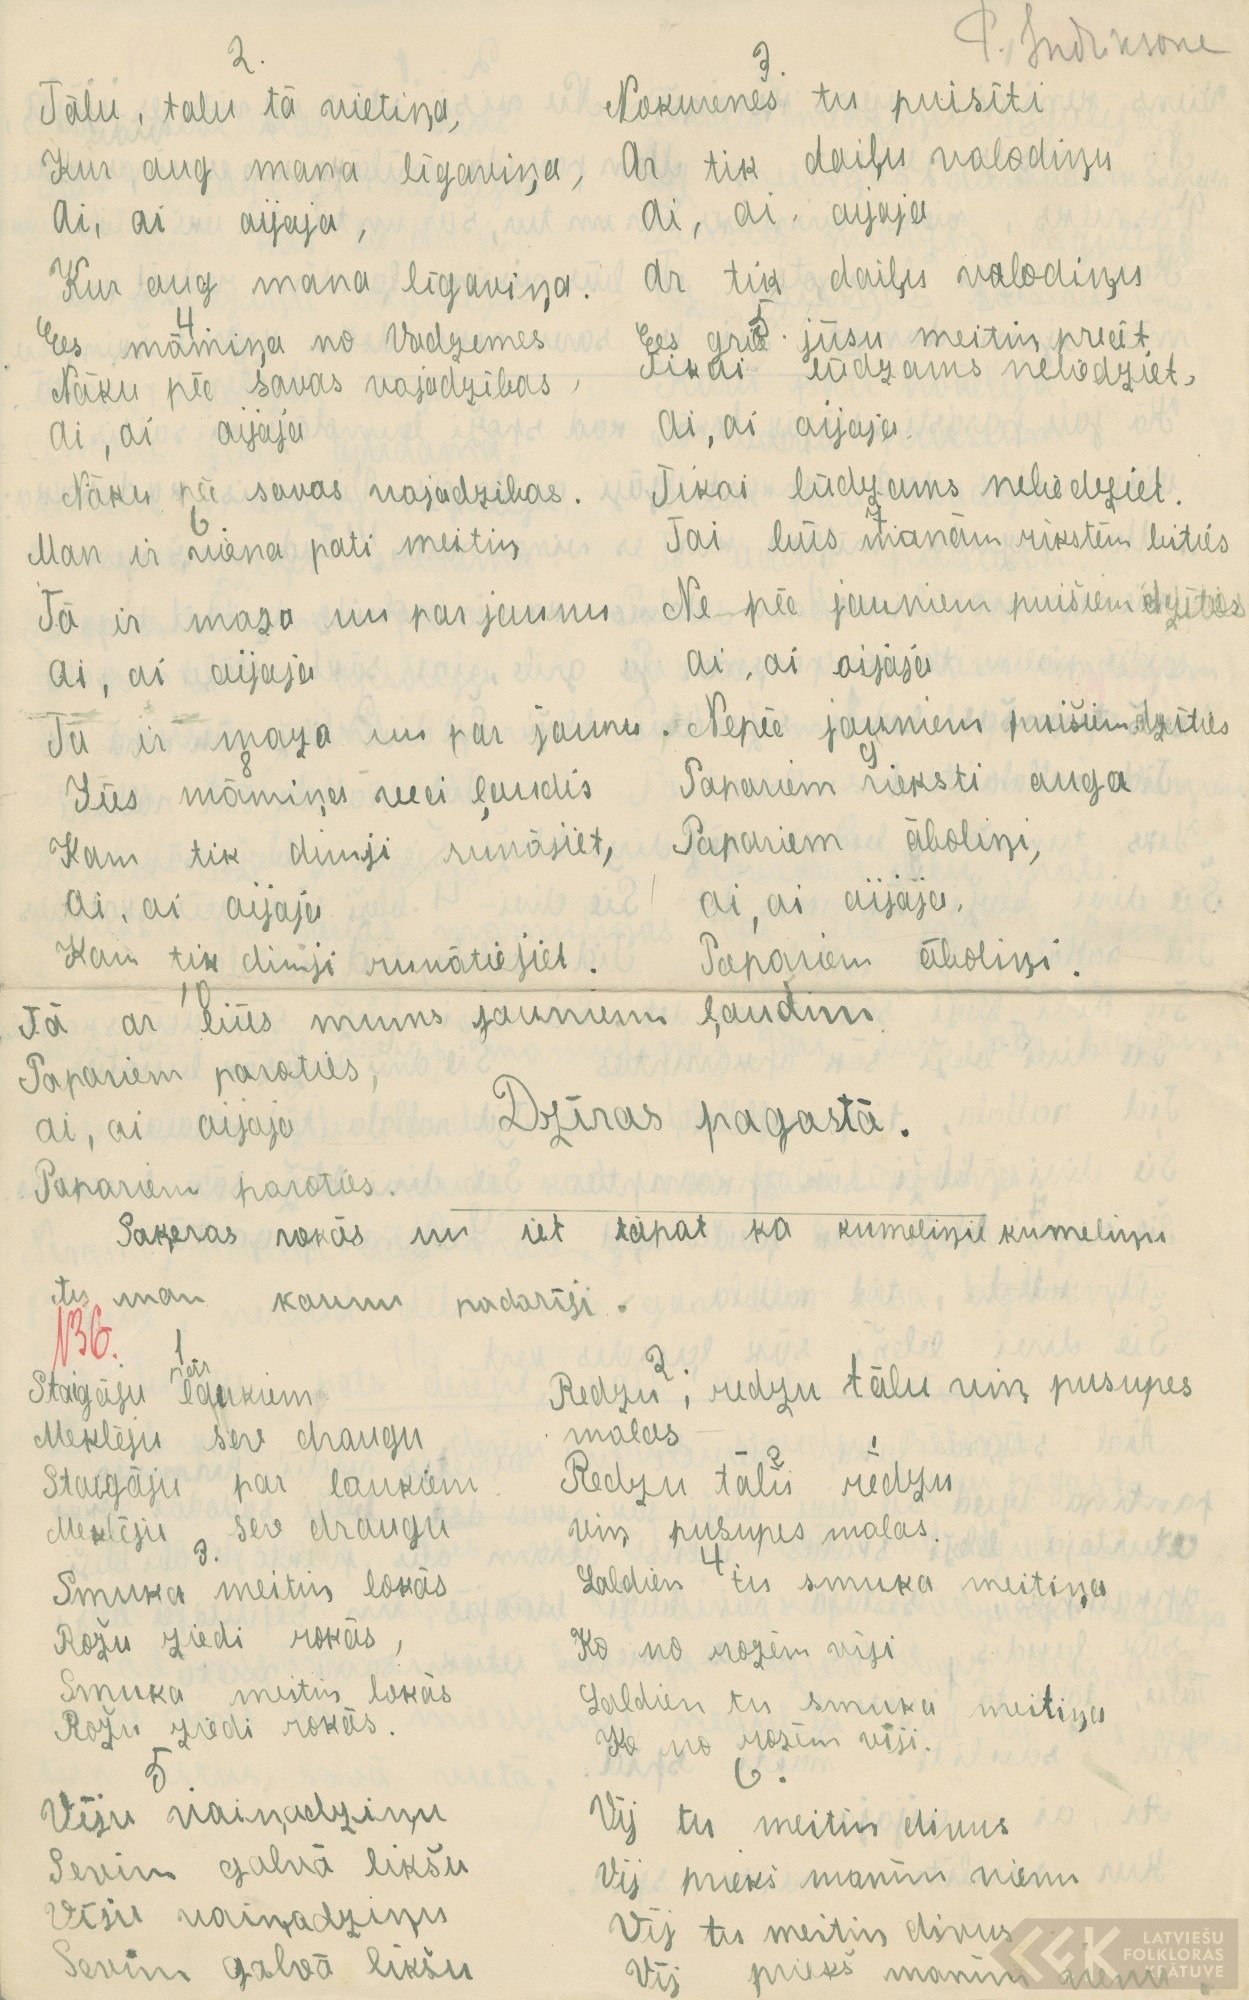 P. Indriksone
2.
Tālu, talu tā vietiņa,
Kur aug mana līgaviņa,
Ai, ai aijaja,
Kur aug mana līgaviņa.
3.
Nokurienes tu puisīti
Ar tik daiļu valodiņu
Ai, ai aijaja
Ar tik daiļu valodiņu
4.
Ees māmiņa no Vadzemes
Nāku pēc savas vajadzības,
Ai, ai aijaja
Nāku pēc savas vajadzibas.
5.
Ees grib jūsu meitiņ precēt
Tikai lūdzams neliedziet,
Ai, ai aijaja.
Tikai lūdzams neliedziet.
6
Man ir viena pati meitiņ
Tā ir maza un par jaunu
Ai, ai aijaja
Tā ir maza un par jaunu.
7
Tai būs manām rīkstēm bīties
Ne pēc jauniem puišiem dzīties
Ai, ai aijaja
Nepēc jauniem puišiem dzīties
8
Jūs māmiņa veci ļaudis
Kam tik dumji runājiet,
Ai, ai aijaja
Kam tik dumji runātiejiet.
9
Papariem rieksti auga
Papariem āboliņi,
ai, ai aijaja.
Papariem āboliņi.
10
Tā ar būs mums jauniem ļaudim
Papariem paroties,
ai, ai aijaja
Papariem paroties.
Dzīras pagastā.
Saķeras rokās un iet tāpat ka kumeliņie kumeliņu
tu man kaunu padarīji.
136.
1
Staigāju pār laukiem
Meklēju sev draugu
Staigāju par laukiem
Meklēju sev draugu
2
Redzu, redzu tālu viņ pusupes
malas
Redzu tālu 2 rēdzu 1
viņ pusupes malas.
3.
Smuka meitiņ lokās
Rožu ziedi rokās,
Smuka meitiņ lokās
Rožu ziedi rokās.
4
Saldien tu smuka meitiņa
Ko no rozēm vīji
Saldien tu smuka meitiņa
Ko no rozēm vīji.
5
Vīju vaiņadziņu
Sevim galvā likšu
Vīju vaiņadziņu
Sevim galvā likšu
6.
Vij tu meitiņ divus
Vij priekš manim vienu
Vīj tu meitiņ divus
Vīj priekš manim vienu.
LATVIEŠU
FOLKLORAS
KRĀTUVE